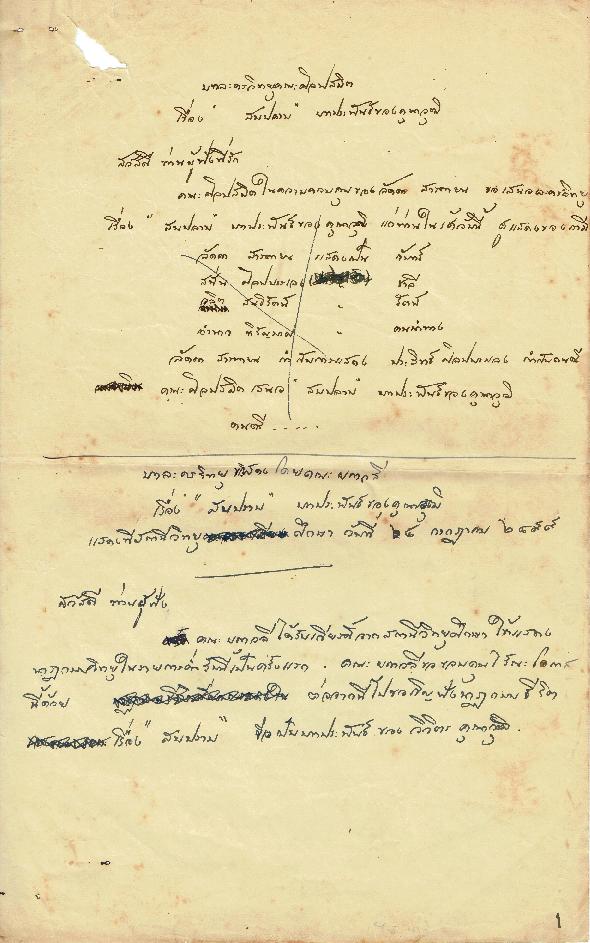 บทละครวิทยุคณะศิลปสมิต
เรื่อง "สัมปลาน" บทประพันธ์ของคุณาวุฒิ
สวัสดี ท่านผู้ฟังที่รัก
คณะศิลปสมิตในความควบคุมของลัดดา สารตายน ขอเสนอละครวิทยุ
เรื่อง "สัมปลาน" บทประพันธ์ของคุณาวุฒิ แก่ท่านในเค้านี้ ผู้แสดงของเรามี
ลัดดา สารตายน แสดงเป็น จันทร์
สมสิน ศิลปบรรเลง " ชาลี
สนธิรัตน์ " รัตน์
อำนาจ " คนนำทาง
ลัดดา สารตายน กำกับการแสดง ประสิทธิ์ ศิลปบรรเลง กำกับดนตรี
คณะศิลปสมิต เสนอ "สัมปลาน" บทประพันธ์ของคุณาวุฒิ
ดนตรี .....
บทละครวิทยุ โดยคณะ
เรื่อง "สัมปลาน" บทประพันธ์ของคุณาวุฒิ
แสดงที่สถานีวิทยุ ศึกษา วันที่ ๒๔ กรกฎาคม ๒๔๙๙
สวัสดี ท่านผู้ฟัง
คณะ ได้รับเกียรติจากสถานีวิทยุศึกษา ให้แสดง
นาฏกรรมวิทยุในรายการค่ำวันนี้เป็นครั้งแรก. คณะ ขอขอบคุณไว้ณะโอกาส
นี้ด้วย ต่อจากนี้ไปขอเชิญฟังนาฏกรรมชีวิต
เรื่อง "สัมปลาน" ซึ่งเป็นบทประพันธ์ของ วิจิตร คุณาวุฒิ.
1